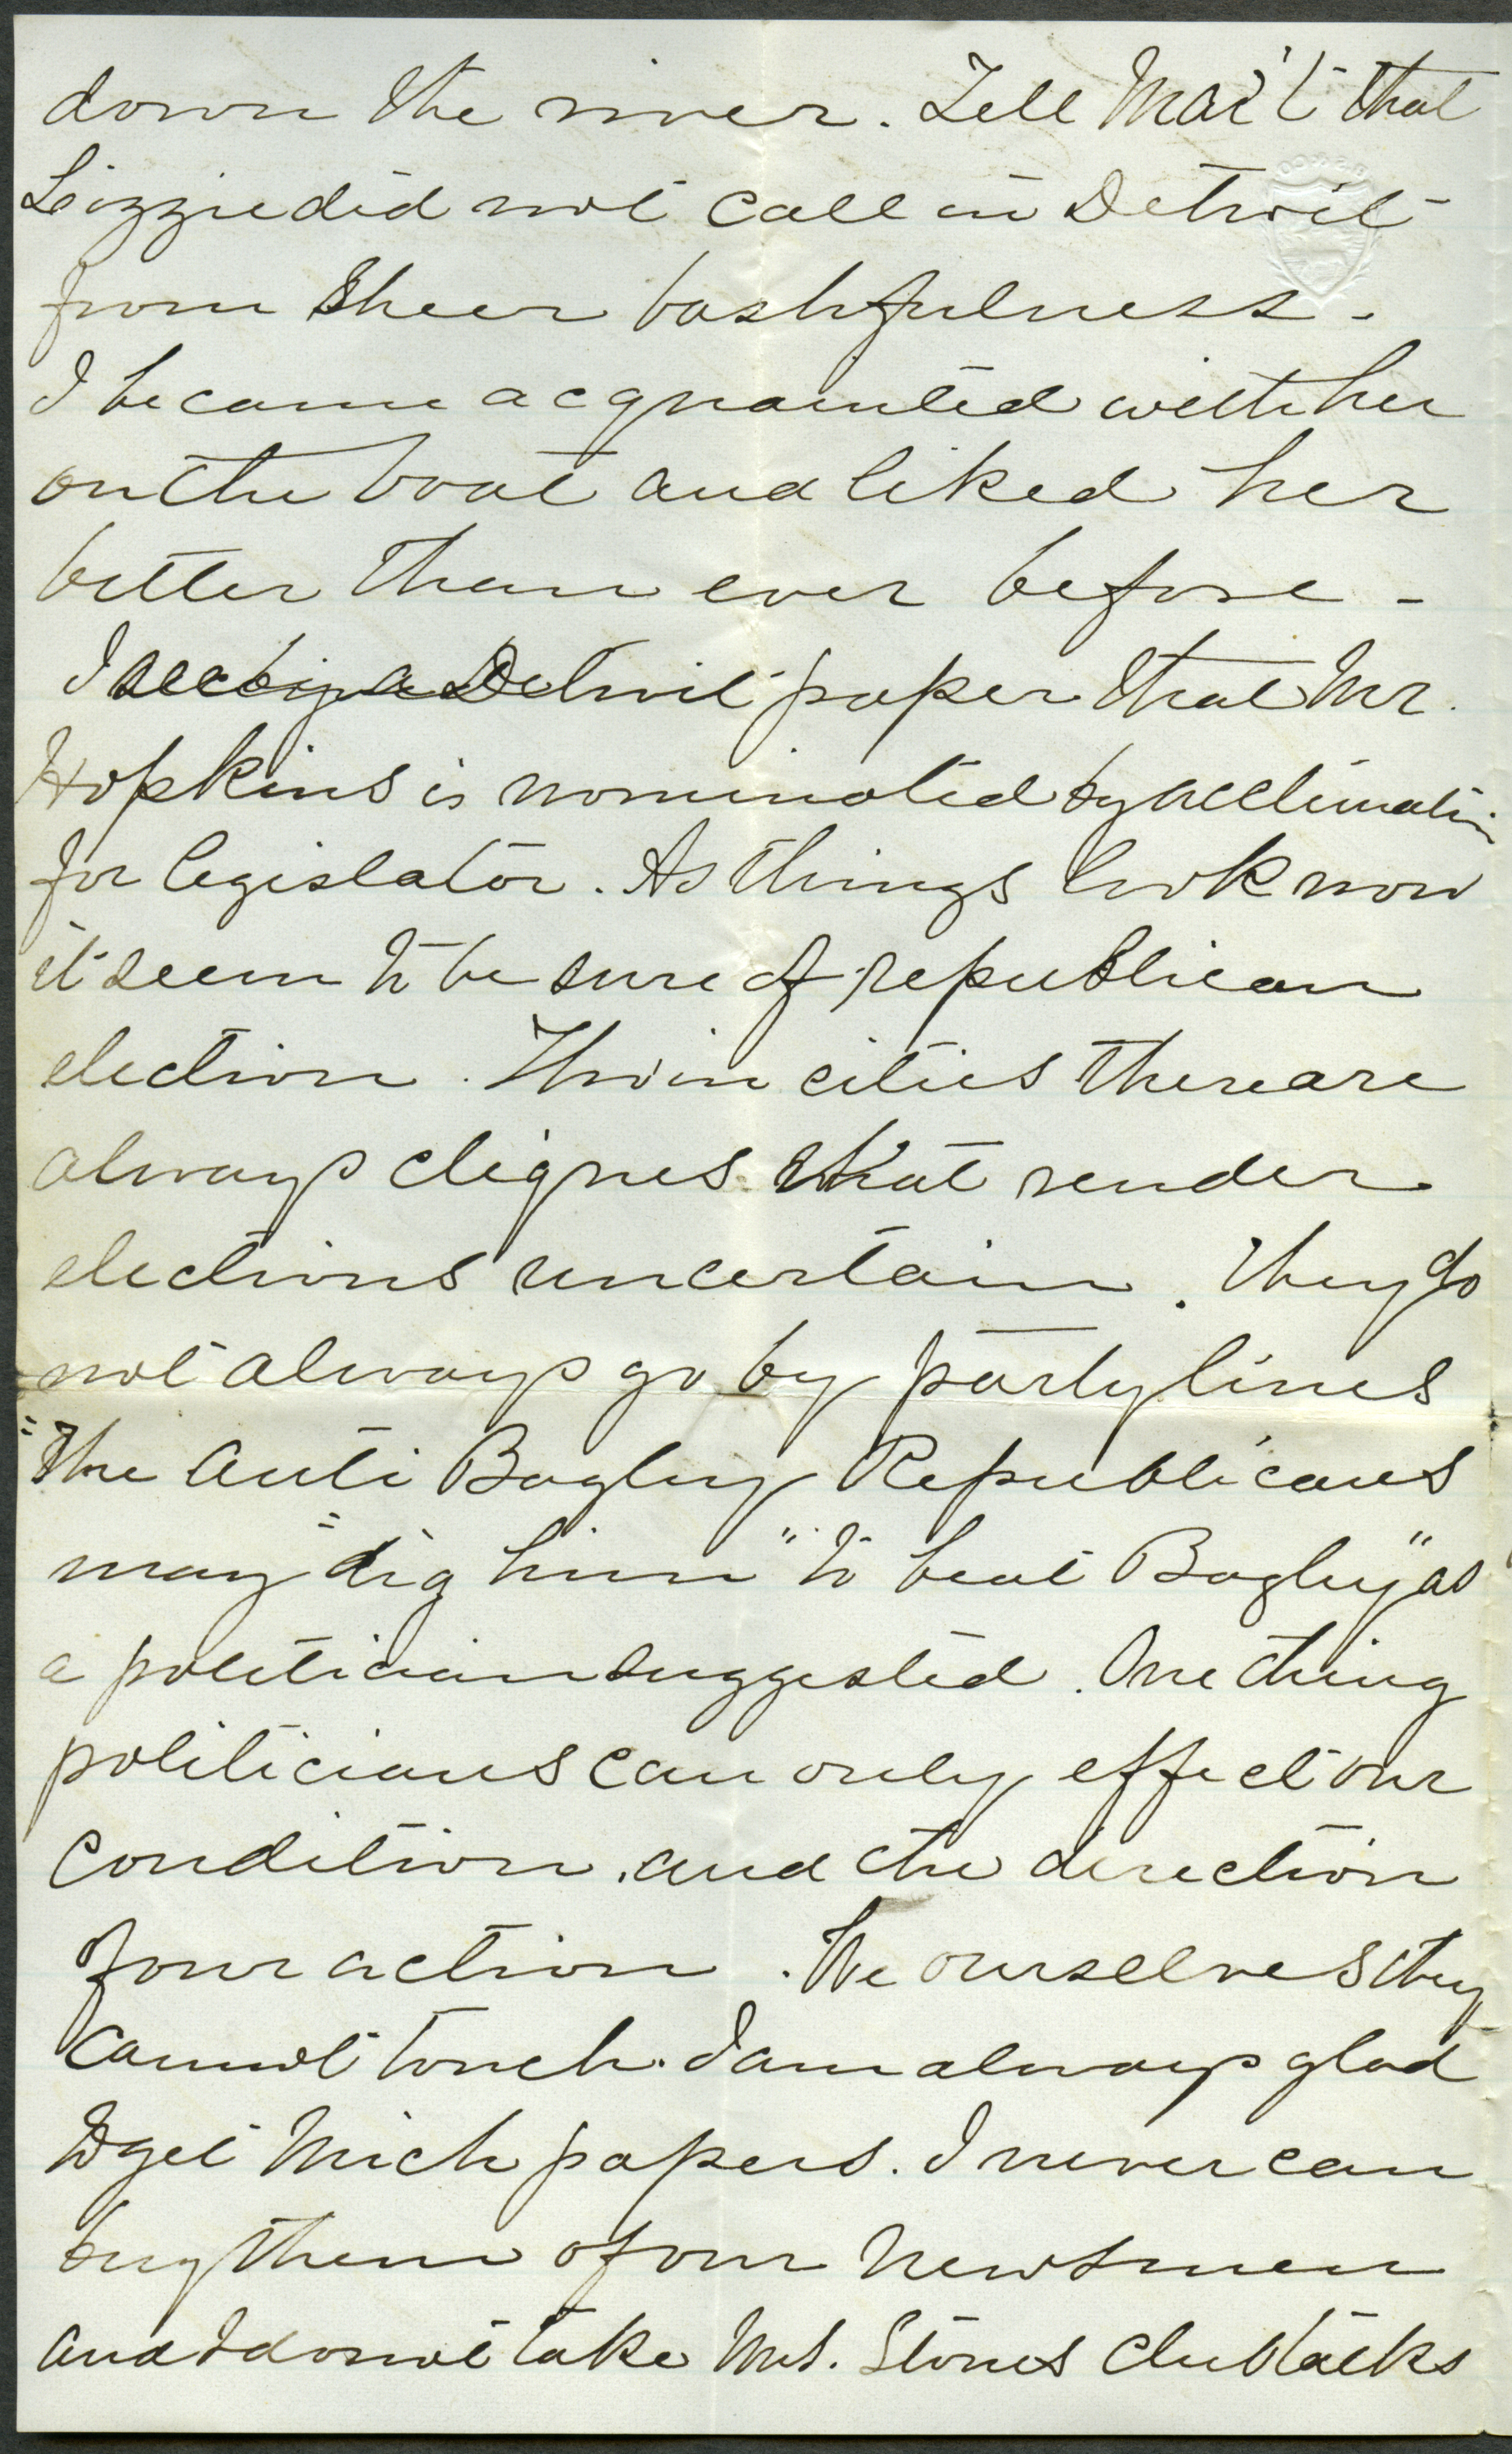 down the river. Tell Mai't that
Lizzie did not call in Detroit
from sheer bashfulness.
I became acquainted with her
on the boat and liked her
better than ever before -
I see by a Detroit paper that Mr.
Hopkins is nominated by acclimation
for legislator. As things look now
it seem to be sure of republican
election. Tho' in cities there are
always cliques that render
elections uncertain. They do
not always go by party lines
"The Anti Bagley Republicans
may "dig him" "to beat Bagley" as
a politician suggested. One thing
politicians can only effect our
condition, and the direction
of our action. We ourselves they
cannot touch. I am always glad
to get Mich papers. I never can
buy them of our Newsmen
and I do not take Mrs. Stones Club talks